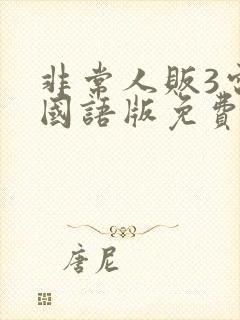 非常人販3
國語版免費
唐尼